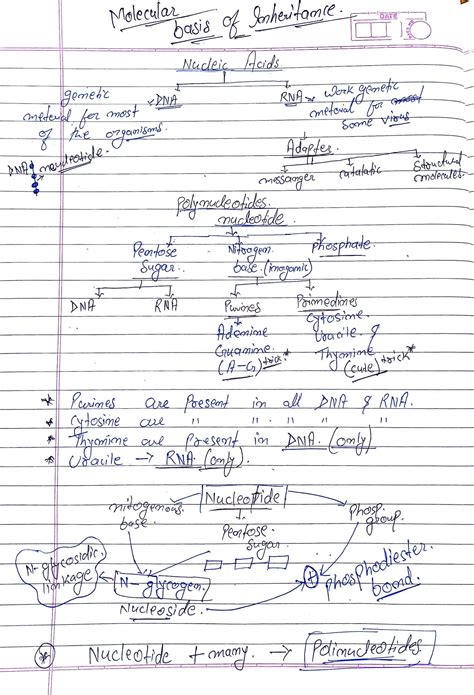 Molecular
basis of Inheritance.
DATE
Nucleic Acids
genetic
meterial for most
of the organisms.
DNA
RNA
work genetic
meterial for most
some virus
DNA
neucleotide.
Adapter.
messanger
catalatic
Structural
molecules.
Polynucleotides.
nucleotide.
Pentose
Sugar.
Nitrogen
base. (inogamic)
Phosphate.
DNA
RNA
Purines
Adenine
Guanine
(A-G) trick*
Primedines
Cytosine.
Uracile &
Thymine
(cute) trick*
* Purines are Present in all DNA & RNA.
* Cytosine are " " " " "
* Thymine are Present in DNA. (only)
* Uracile → RNA (only).
Nucleotide
nitogenous
base.
Pentose
Sugar
Phosp.
group.
N-glycosidic
linkage
N-glycogen.
Nucleoside.
+
Phosphodiester
bond.
* Nucleotide + many. → Polinucleotides.